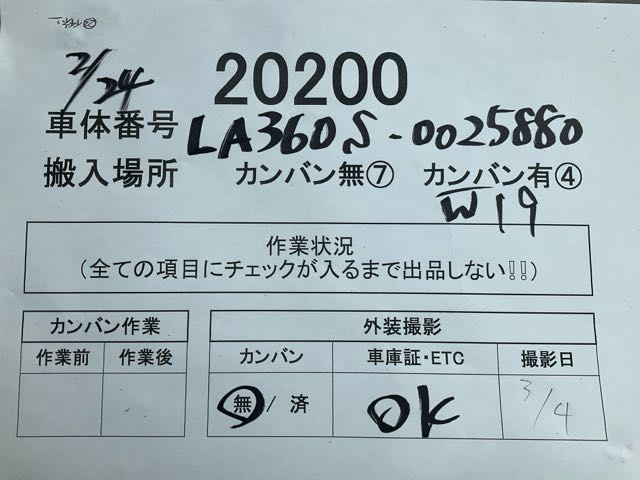 2/24
20200
車体番号 LA360S-0025880
搬入場所 カンバン無⑦ カンバン有④
W19
作業状況
(全ての項目にチェックが入るまで出品しない!!)
カンバン作業 外装撮影
作業前 作業後 カンバン 車庫証・ETC 撮影日
無/済 OK 3/4